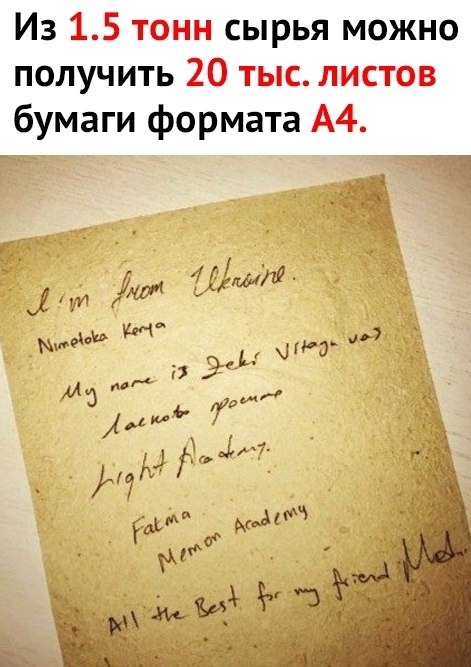 Из 1.5 тонн сырья можно
получить 20 тыс. листов
бумаги формата А4.
I'm from Ukraine.
Nimetoka Kenya
My name is Zeki Vitayu vas
Ласково просимо
Light Academy.
Fatma
Memon Academy
All the Best for my friend